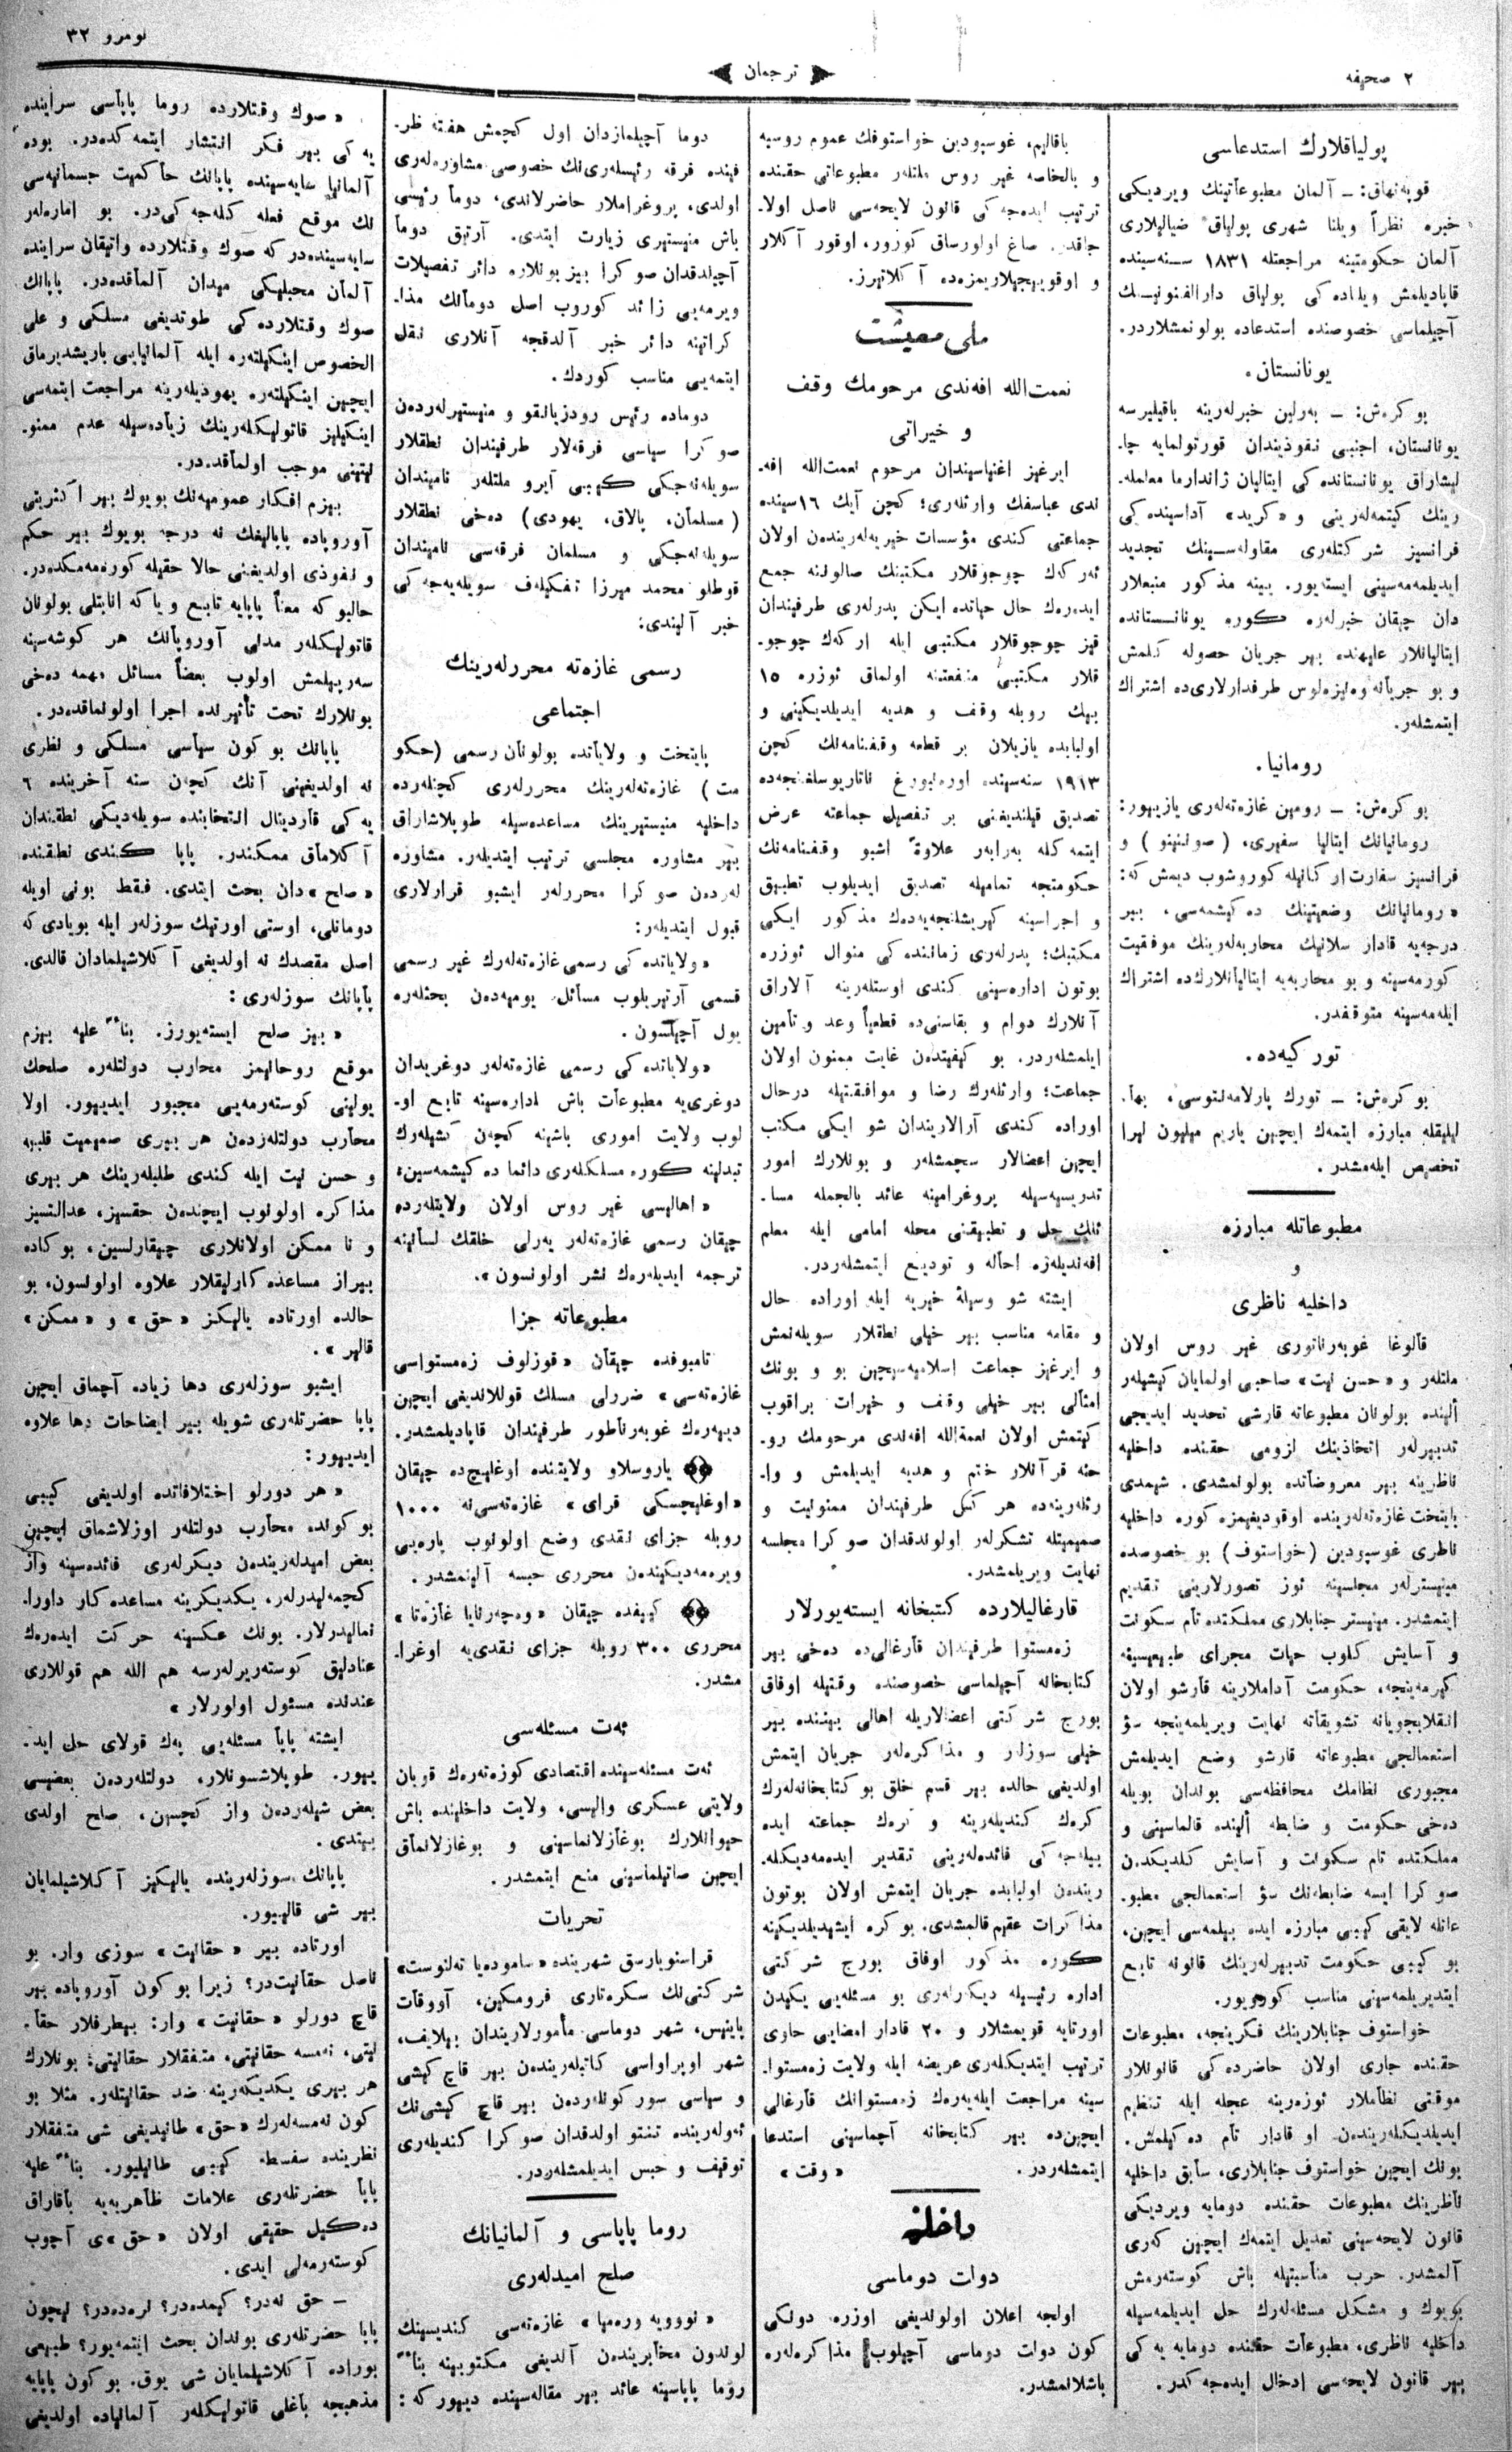 ۲ صحیفه
ترجمان
نومرو ۳۲
پولیاقلارك استدعاسی
قوپه‌نهاق: ــ آلمان مطبوعاتینك ویردیكی
خبره نظراً ویلنا شهری پولیاق ضیالیلاری
آلمان حكومتینه مراجعتله ۱۸۳۱ سنه‌سینده
قاپادیلمش ویلاده‌كی پولیاق دارالفنونینك
آچیلماسی خصوصنده استدعاده بولونمشلاردر.
یونانستان.
بوكره‌ش: ــ به‌رلین خبرلرینه باقیلیرسه
یونانستان، اجنبی نفوذیندان قورتولمایه چا-
لیشاراق یونانستانده‌كی ایتالیان ژاندارما معامله-
رینك كیتمه‌له‌رینی و «كرید» آداسینده‌كی
فرانسیز شركتلری مقاوله‌سینك تجدید
ایدیلمه‌مه‌سینی ایسته‌یور. یینه مذكور منبعلار
دان چیقان خبرلره كوره یونانستانده
ایتالیانلار علیهنده بیر جریان حصوله كلمش
و بو جریانه وه‌نیزه‌لوس طرفدارلاری‌ده اشتراك
ایتمشلر.
رومانیا.
بوكره‌ش: ــ رومین غازه‌ته‌له‌ری یازییور:
رومانیانك ایتالیا سفیری، (صولنینو) و
فرانسیز سفارت اركانیله كوروشوب دیمش كه:
«رومانیانك وضعیتینك ده‌كیشمه‌سی، بیر
درجه‌یه قادار سلانیك محاربه‌له‌رینك موفقیت
كورمه‌سینه و بو محاربه‌یه ایتالیانلارك‌ده اشتراك
ایله‌مه‌سینه متوقفدر.
توركیه‌ده.
بوكره‌ش: ــ تورك پارلامه‌نتوسی، بها-
لیلیقله مبارزه ایتمه‌ك ایچین یاریم میلیون لیرا
تخصیص ایله‌مشدر.
مطبوعاتله مبارزه
و
داخلیه ناظری
قالوغا غوبه‌رناتوری غیر روس اولان
ملتلر و «حسن نیت» صاحبی اولمایان كیشیلر
الینده بولونان مطبوعاته قارشی تحدید ایدیجی
تدبیرلر اتخاذینك لزومی حقنده داخلیه
ناظرینه بیر معروضاتده بولونمشدی. شیمدی
پایتخت غازه‌ته‌له‌رینده اوقودیغیمزه كوره داخلیه
ناظری غوسپودین (خواستوف) بو خصوصده
مینیسترلر مجلسینه ئوز تصورلارینی تقدیم
ایتمشدر. مینیستر جنابلاری مملكتده تام سكونت
و آسایش كلوب حیات مجرای طبیعیسینه
كیرمه‌ینجه، حكومت آداملارینه قارشو اولان
انقلابجویانه تشویقاته نهایت ویریلمه‌ینجه سؤ
استعمالجی مطبوعاته قارشو وضع ایدیلمش
مجبوری نظامك محافظه‌سی بوندان بویله
ده‌خی حكومت و ضابطه الینده قالماسینی و
مملكتده تام سكونت و آسایش كلدیكدن
صوكرا ایسه ضابطه‌نك سؤ استعمالجی مطبو-
عاتله لایقی كیبی مبارزه ایده بیلمه‌سی ایچین،
بو كیبی حكومت تدبیرلرینك قانونه تابع
ایتدیریلمه‌سینی مناسب كورویور.
خواستوف جنابلارینك فكرینجه، مطبوعات
حقنده جاری اولان حاضرده‌كی قانونلار
موقتی نظاملار ئوزه‌رینه عجله ایله تنظیم
ایدیلدیكله‌ریندن او قادار تام ده‌كیلمش.
بونك ایچین خواستوف جنابلاری، سابق داخلیه
ناظرینك مطبوعات حقنده دومایه ویردیكی
قانون لایحه‌سینی تعدیل ایتمه‌ك ایچین كه‌ری
آلمشدر. حرب مناسبتیله باش كوسته‌رمش
بویوك و مشكل مسئله‌له‌رك حل ایدیلمه‌سیله
داخلیه ناظری، مطبوعات حقنده دومایه یه‌كی
بیر قانون لایحه‌سی ادخال ایده‌جه‌كدر.
باقالیم، غوسپودین خواستوفك عموم روسیه
و بالخاصه غیر روس ملتلر مطبوعاتی حقنده
ترتیب ایده‌جه‌كی قانون لایحه‌سی ناصل اولا-
جاقدر. صاغ اولورساق كورور، اوقور آكلار
و اوقویییجیلاریمزه‌ده آكلاتیرز.
ملی معیشت
نعمت‌الله افه‌ندی مرحومك وقف
و خیراتی
ایرغیز اغنیاسیندان مرحوم نعمت‌الله افه-
ندی عباسفك وارثله‌ری؛ كچن آیك ۱۶سینده
جماعتی كندی مؤسسات خیریه‌له‌ریندن اولان
ئه‌ركه‌ك چوجوقلار مكتبینك صالونینه جمع
ایده‌رك حال حیاتده ایكن پدرله‌ری طرفیندان
قیز چوجوقلار مكتبی ایله اركه‌ك چوجو-
قلار مكتبی منفعتینه اولماق ئوزره ۱۵
بیك روبله وقف و هدیه ایدیلدیكینی و
اولبابده یازیلان بر قطعه وقفنامه‌نك كچن
۱۹۱۳ سنه‌سینده اوره‌نبورغ ناتاریوسلغنجه‌ده
تصدیق قیلندیغنی بر تفصیل جماعته عرض
ایتمه‌كله به‌رابه‌ر علاوةً اشبو وقفنامه‌نك
حكومتجه تمامیله تصدیق ایدیلوب تطبیق
و اجراسینه كیریشلنجه‌یه‌ده‌ك مذكور ایكی
مكتبك؛ پدرله‌ری زماننده‌كی منوال ئوزره
بوتون اداره‌سینی كندی اوستله‌رینه آلاراق
آنلارك دوام و بقاسنی‌ده قطعیاً وعد و تأمین
ایلمشله‌ردر. بو كیفیتدن غایت ممنون اولان
جماعت؛ وارثله‌رك رضا و موافقتیله درحال
اوراده كندی آرالاریندان شو ایكی مكتب
ایچین اعضالار سچمشلر و بونلارك امور
تدریسیه‌سیله پروغرامینه عائد بالجمله مسا-
ئلك حل و تطبیقنی محله امامی ایله معلم
افه‌ندیله‌ره احاله و تودیع ایتمشله‌ردر.
ایشته شو وسیلهٔ خیریه ایله اوراده حال
و مقامه مناسب بیر خیلی نطقلار سویله‌نمش
و ایرغیز جماعت اسلامیه‌سیچین بو و بونك
امثالی بیر خیلی وقف و خیرات براقوب
كیتمش اولان نعمةالله افه‌ندی مرحومك رو-
حنه قرآنلار ختم و هدیه ایدیلمش و وا-
رثله‌رینه‌ده هر كس طرفیندان ممنونیت و
صمیمیتله تشكرلر اولوندقدان صوكرا مجلسه
نهایت ویریلمشدر.
قارغالیلارده كتبخانه ایسته‌یورلار
زه‌مستوا طرفیندان قارغالی‌ده ده‌خی بیر
كتابخانه آچیلماسی خصوصنده وقتیله اوفاق
بورج شركتی اعضالاریله اهالی بیننده بیر
خیلی سوزلر و مذاكره‌لر جریان ایتمش
اولدیغی حالده بیر قسم خلق بو كتابخانه‌له‌رك
كرك كندیله‌رینه و كره‌ك جماعته ایده
بیله‌جه‌كی فائده‌له‌رینی تقدیر ایده‌مه‌دیكله-
ریندن اولبابده جریان ایتمش اولان بوتون
مذاكرات عقیم قالمشدی. بو كره ایشیدیلدیكینه
كوره مذكور اوفاق بورج شركتی
اداره رئیسیله دیكرله‌ری بو مسئله‌یی یكیدن
اورتایه قویمشلار و ۲۰ قادار امضایی حاوی
ترتیب ایتدیكله‌ری عریضه ایله ولایت زه‌مستوا-
سینه مراجعت ایله‌یه‌رك زه‌مستوانك قارغالی
ایچین‌ده بیر كتابخانه آچماسینی استدعا
ایتمشله‌ردر. «وقت»
داخلیه
دولت دوماسی
اولجه اعلان اولوندیغی اوزره دونكی
كون دولت دوماسی آچیلوب مذاكره‌له‌ره
باشلانمشدر.
دوما آچیلمازدان اول كچمش هفته ظر-
فینده فرقه رئیسله‌ری‌نك خصوصی مشاوره‌له‌ری
اولدی، پروغراملار حاضرلاندی، دوما رئیسی
باش منیستیری زیارت ایتدی. آرتیق دوما
آچیلدقدان صوكرا بیز بونلاره دائر تفصیلات
ویرمه‌یی زائد كوروب اصل دومانك مذا-
كراتینه دائر خبر آلدقجه آنلاری نقل
ایتمه‌یی مناسب كوردك.
دوماده رئیس رودزیانقو و منیستیرله‌ردن
صوكرا سیاسی فرقه‌لار طرفیندان نطقلار
سویله‌نه‌جكی كیبی آیرو ملتلر نامیندان
(مسلمان، پالاق، یهودی) ده‌خی نطقلار
سویله‌نه‌جكی و مسلمان فرقه‌سی نامیندان
قوطلو محمد میرزا تفكیلف سویله‌یه‌جه‌كی
خبر آلیندی.
رسمی غازه‌ته محررله‌رینك
اجتماعی
پایتخت و ولایاتده بولونان رسمی (حكو
مت) غازه‌ته‌له‌رینك محررله‌ری كچنلرده
داخلیه منیستیرینك مساعده‌سیله طوپلاشاراق
بیر مشاوره مجلسی ترتیب ایتدیلر. مشاوره
له‌ردن صوكرا محررلر ایشبو قرارلاری
قبول ایتدیلر:
«ولایاتده‌كی رسمی غازه‌ته‌له‌رك غیر رسمی
قسمی آرتیریلوب مسائل یومیه‌دن بحثله‌ره
یول آچیلسون.
«ولایاتده‌كی رسمی غازه‌ته‌لر دوغریدان
دوغری‌یه مطبوعات باش اداره‌سینه تابع او-
لوب ولایت اموری باشینه كچن كیشیله‌رك
تبدلینه كوره مسلكله‌ری دائما ده‌كیشمه‌سین؛
«اهالیسی غیر روس اولان ولایتله‌رده
چیقان رسمی غازه‌ته‌لر یه‌رلی خلقك لسانینه
ترجمه ایدیله‌رك نشر اولونسون».
مطبوعاته جزا
تامبوفده چیقان «قوزلوف زه‌مستواسی
غازه‌ته‌سی» ضررلی مسلك قوللاندیغی ایچین
دییه‌رك غوبه‌رناطور طرفیندان قاپادیلمشدر.
یاروسلاو ولایتنده اوغلیچ‌ده چیقان
«اوغلیچسكی قرای» غازه‌ته‌سی‌نه ۱۰۰۰
روبله جزای نقدی وضع اولونوب پاره‌یی
ویره‌مه‌دیكیندن محرری حبسه آلینمشدر.
كییفده چیقان «وه‌چه‌رنایا غازه‌تا»
محرری ۳۰۰ روبله جزای نقدی‌یه اوغرا-
مشدر.
ئه‌ت مسئله‌سی
ئه‌ت مسئله‌سینده اقتصادی كوزه‌ته‌رك قوبان
ولایتی عسكری والیسی، ولایت داخلینده باش
حیوانلارك بوغازلانماسینی و بوغازلانماق
ایچین صاتیلماسینی منع ایتمشدر.
تحریات
قراسنویارسق شهرینده «سامودیا ته‌لنوست»
شركتی‌نك سكره‌تاری فرومكین، آووقات
پاینیس، شهر دوماسی مأمورلاریندان بیلایف،
شهر اوپراواسی كاتبله‌ریندن بیر قاچ كیشی
و سیاسی سورگونله‌ردن بیر قاچ كیشی‌نك
ئه‌وله‌رینده تفتتو اولدقدان صوكرا كندیله‌ری
توقیف و حبس ایدیلمشله‌ردر.
روما پاپاسی و آلمانیانك
صلح امیدله‌ری
«نووویه وره‌میا» غازه‌ته‌سی كندیسینك
لوندون مخابریندن آلدیغی مكتوبینه بناءً
روما پاپاسینه عائد بیر مقاله‌سینده دییور كه:
«صوك وقتلارده روما پاپاسی سراینده
یه‌كی بیر فكر انتشار ایتمه‌كده‌در. بوده
آلمانیا سایه‌سینده پاپانك حاكمیت جسمانیه‌سی
نك موقع فعله كله‌جه‌كی‌در. بو اماره‌لر
سایه‌سینده‌در كه صوك وقتلارده واتیقان سراینده
آلمان محبلیكی میدان آلماقده‌در. پاپانك
صوك وقتلارده‌كی طوتدیغی مسلكی و علی
الخصوص اینكیلتره ایله آلمانیایی باریشدیرماق
ایچین اینكیلتره یهودیله‌رینه مراجعت ایتمه‌سی
اینكیلیز قاتولیكله‌رینك زیاده‌سیله عدم ممنو-
نیتینی موجب اولماقده‌در.
بیزم افكار عمومیه‌نك بویوك بیر اكثریتی
آوروپاده پاپالیغك نه درجه بویوك بیر حكم
و نفوذی اولدیغنی حالا حقیله كوره‌مه‌مكده‌در.
حالبوكه معناً پاپایه تابع و یاكه انابتلی بولونان
قاتولیكلر مدنی آوروپانك هر كوشه‌سینه
سه‌ریپلمش اولوب بعضاً مسائل مهمه ده‌خی
بونلارك تحت تأثیرنده اجرا اولونماقده‌در.
پاپانك بو كون سیاسی مسلكی و نظری
نه اولدیغینی آنك كچن سنه آخرینده ٦
یه‌كی قاردینال انتخابنده سویله‌دیكی نطقندان
آكلاماق ممكندر. پاپا كندی نطقنده
«صلح»دان بحث ایتدی. فقط بونی اویله
دومانلی، اوستی اورتیك سوزلر ایله بویادی كه
اصل مقصدك نه اولدیغی آكلاشیلمادان قالدی.
پاپانك سوزله‌ری:
«بیز صلح ایسته‌یورز. بناءً علیه بیزم
موقع روحانیمز محارب دولتله‌ره صلحك
یولینی كوسته‌رمه‌یی مجبور ایدییور. اولا
محارب دولتله‌ردن هر بیری صمیمیت قلبیه
و حسن نیت ایله كندی طلبله‌رینك هر بیری
مذاكره اولونوب ایچندن حقسیز، عدالتسیز
و نا ممكن اولانلاری چیقارلسین، بوكاده
بیراز مساعده‌كارلیقلار علاوه اولونسون، بو
حالده اورتاده یالیكز «حق» و «ممكن»
قالیر».
ایشبو سوزله‌ری دها زیاده آچماق ایچین
پاپا حضرتله‌ری شویله بیر ایضاحات دها علاوه
ایدییور:
«هر دورلو اختلافاتده اولدیغی كیبی
بو كونده محارب دولتلر اوزلاشماق ایچین
بعض امیدله‌ریندن دیكرله‌ری فائده‌سینه واز
كچمه‌لیدرلر، یكدیكرینه مساعده‌كار داورا-
نمالیدرلار. بونك عكسینه حركت ایده‌رك
عنادلیق كوسته‌ریرله‌رسه هم الله هم قوللاری
عندنده مسئول اولورلار»
ایشته پاپا مسئله‌یی یه‌ك قولای حل اید-
ییور. طوپلاشسونلار، دولتله‌ردن بعضیسی
بعض شیله‌ردن واز كچسین، صلح اولدی
بیتدی.
پاپانك سوزله‌رینده یالیكیز آكلاشیلمایان
بیر شی قالییور.
اورتاده بیر «حقانیت» سوزی وار. بو
ناصل حقانیت‌در؟ زیرا بو كون آوروپاده بیر
قاچ دورلو «حقانیت» وار: بیطرفلار حقا-
نیتی، نه‌مسه حقانیتی، متفقلار حقانیتی؛ بونلارك
هر بیری یكدیكه‌رینه ضد حقانیتلر. مثلا بو
كون نه‌مسه‌له‌رك «حق» طانیدیغی شی متفقلار
نظرینده سفسطه كیبی طانیلیور. بناءً علیه
پاپا حضرتله‌ری علامات ظاهریه‌یه باقاراق
ده‌كیل حقیقی اولان «حق»ی آچوب
كوسته‌رمه‌لی ایدی.
ــ حق نه‌در؟ كیمده‌در؟ نره‌ده‌در؟ نیچون
پاپا حضرتله‌ری بوندان بحث ایتمه‌یور؟ طبیعی
بوراده آكلاشیلمایان شی یوق. بو كون پاپایه
مذهبجه باغلی قاتولیكلر آلمانیاده اولدیغی